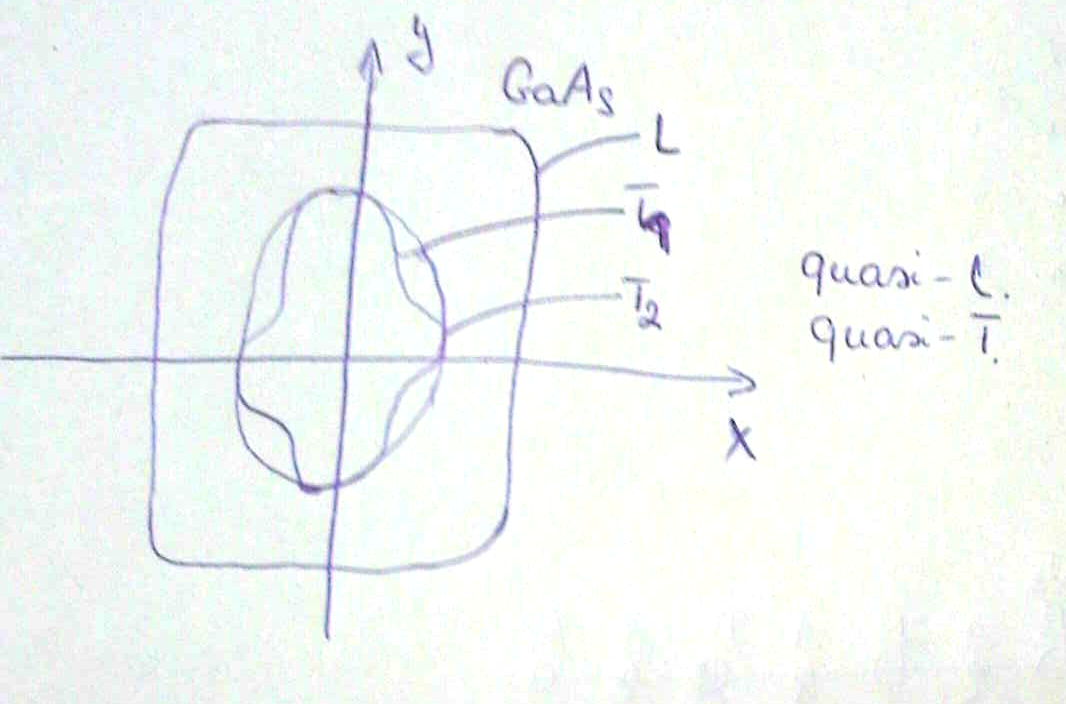 y
GaAs
L
T1
T2
quasi-L.
quasi-T.
X